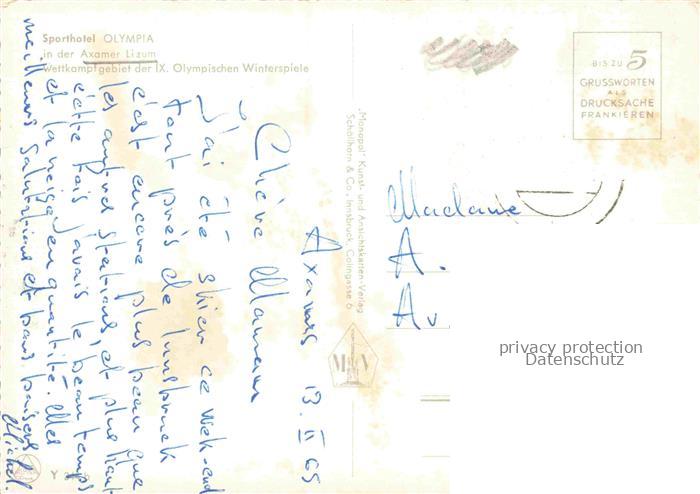 Sporthotel OLYMPIA
in der Axamer Lizum
Wettkampfgebiet der IX. Olympischen Winterspiele
BIS ZU 5
GRUSSWORTEN
ALS
DRUCKSACHE
FRANKIEREN
„Monopol" Kunst- und Ansichtskarten-Verlag
Schöllhorn & Co., Innsbruck, Colingasse 6
Axams 13 II 65
Chère Maman
J'ai été skier ce wek-end
tout près de Innsbruck
c'est encore plus beau que
les autres stations, et plus haut
cette fois j'avais le beau temps
et la neige en quantité. Mes
meilleures salutations et bons baisers
Michel.
Madame
A.
Av
privacy protection
Datenschutz